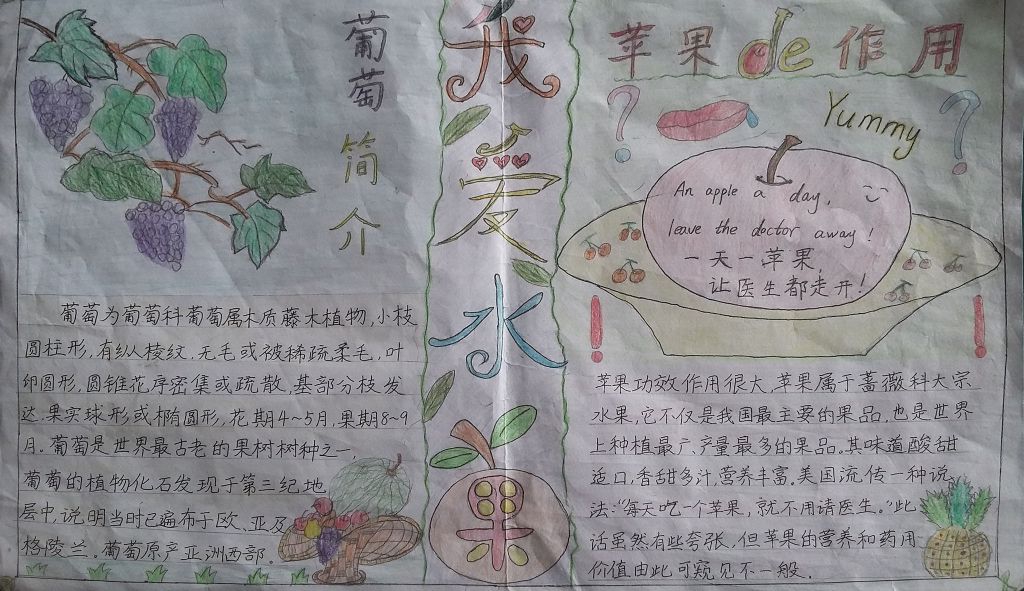 葡萄简介
葡萄为葡萄科葡萄属木质藤木植物,小枝
圆柱形,有纵棱纹,无毛或被稀疏柔毛,叶
卵圆形,圆锥花序密集或疏散,基部分枝发
达.果实球形或椭圆形,花期4~5月,果期8~9
月。葡萄是世界最古老的果树树种之一,
葡萄的植物化石发现于第三纪地
层中,说明当时已遍布于欧、亚及
格陵兰。葡萄原产亚洲西部。
我爱水果
苹果de作用
Yummy
An apple a day,
leave the doctor away!
一天一苹果,
让医生都走开!
苹果功效作用很大,苹果属于蔷薇科大宗
水果,它不仅是我国最主要的果品,也是世界
上种植最广、产量最多的果品。其味道酸甜
适口,香甜多汁,营养丰富。美国流传一种说
法:“每天吃一个苹果,就不用请医生。”此
话虽然有些夸张,但苹果的营养和药用
价值由此可窥见不一般.